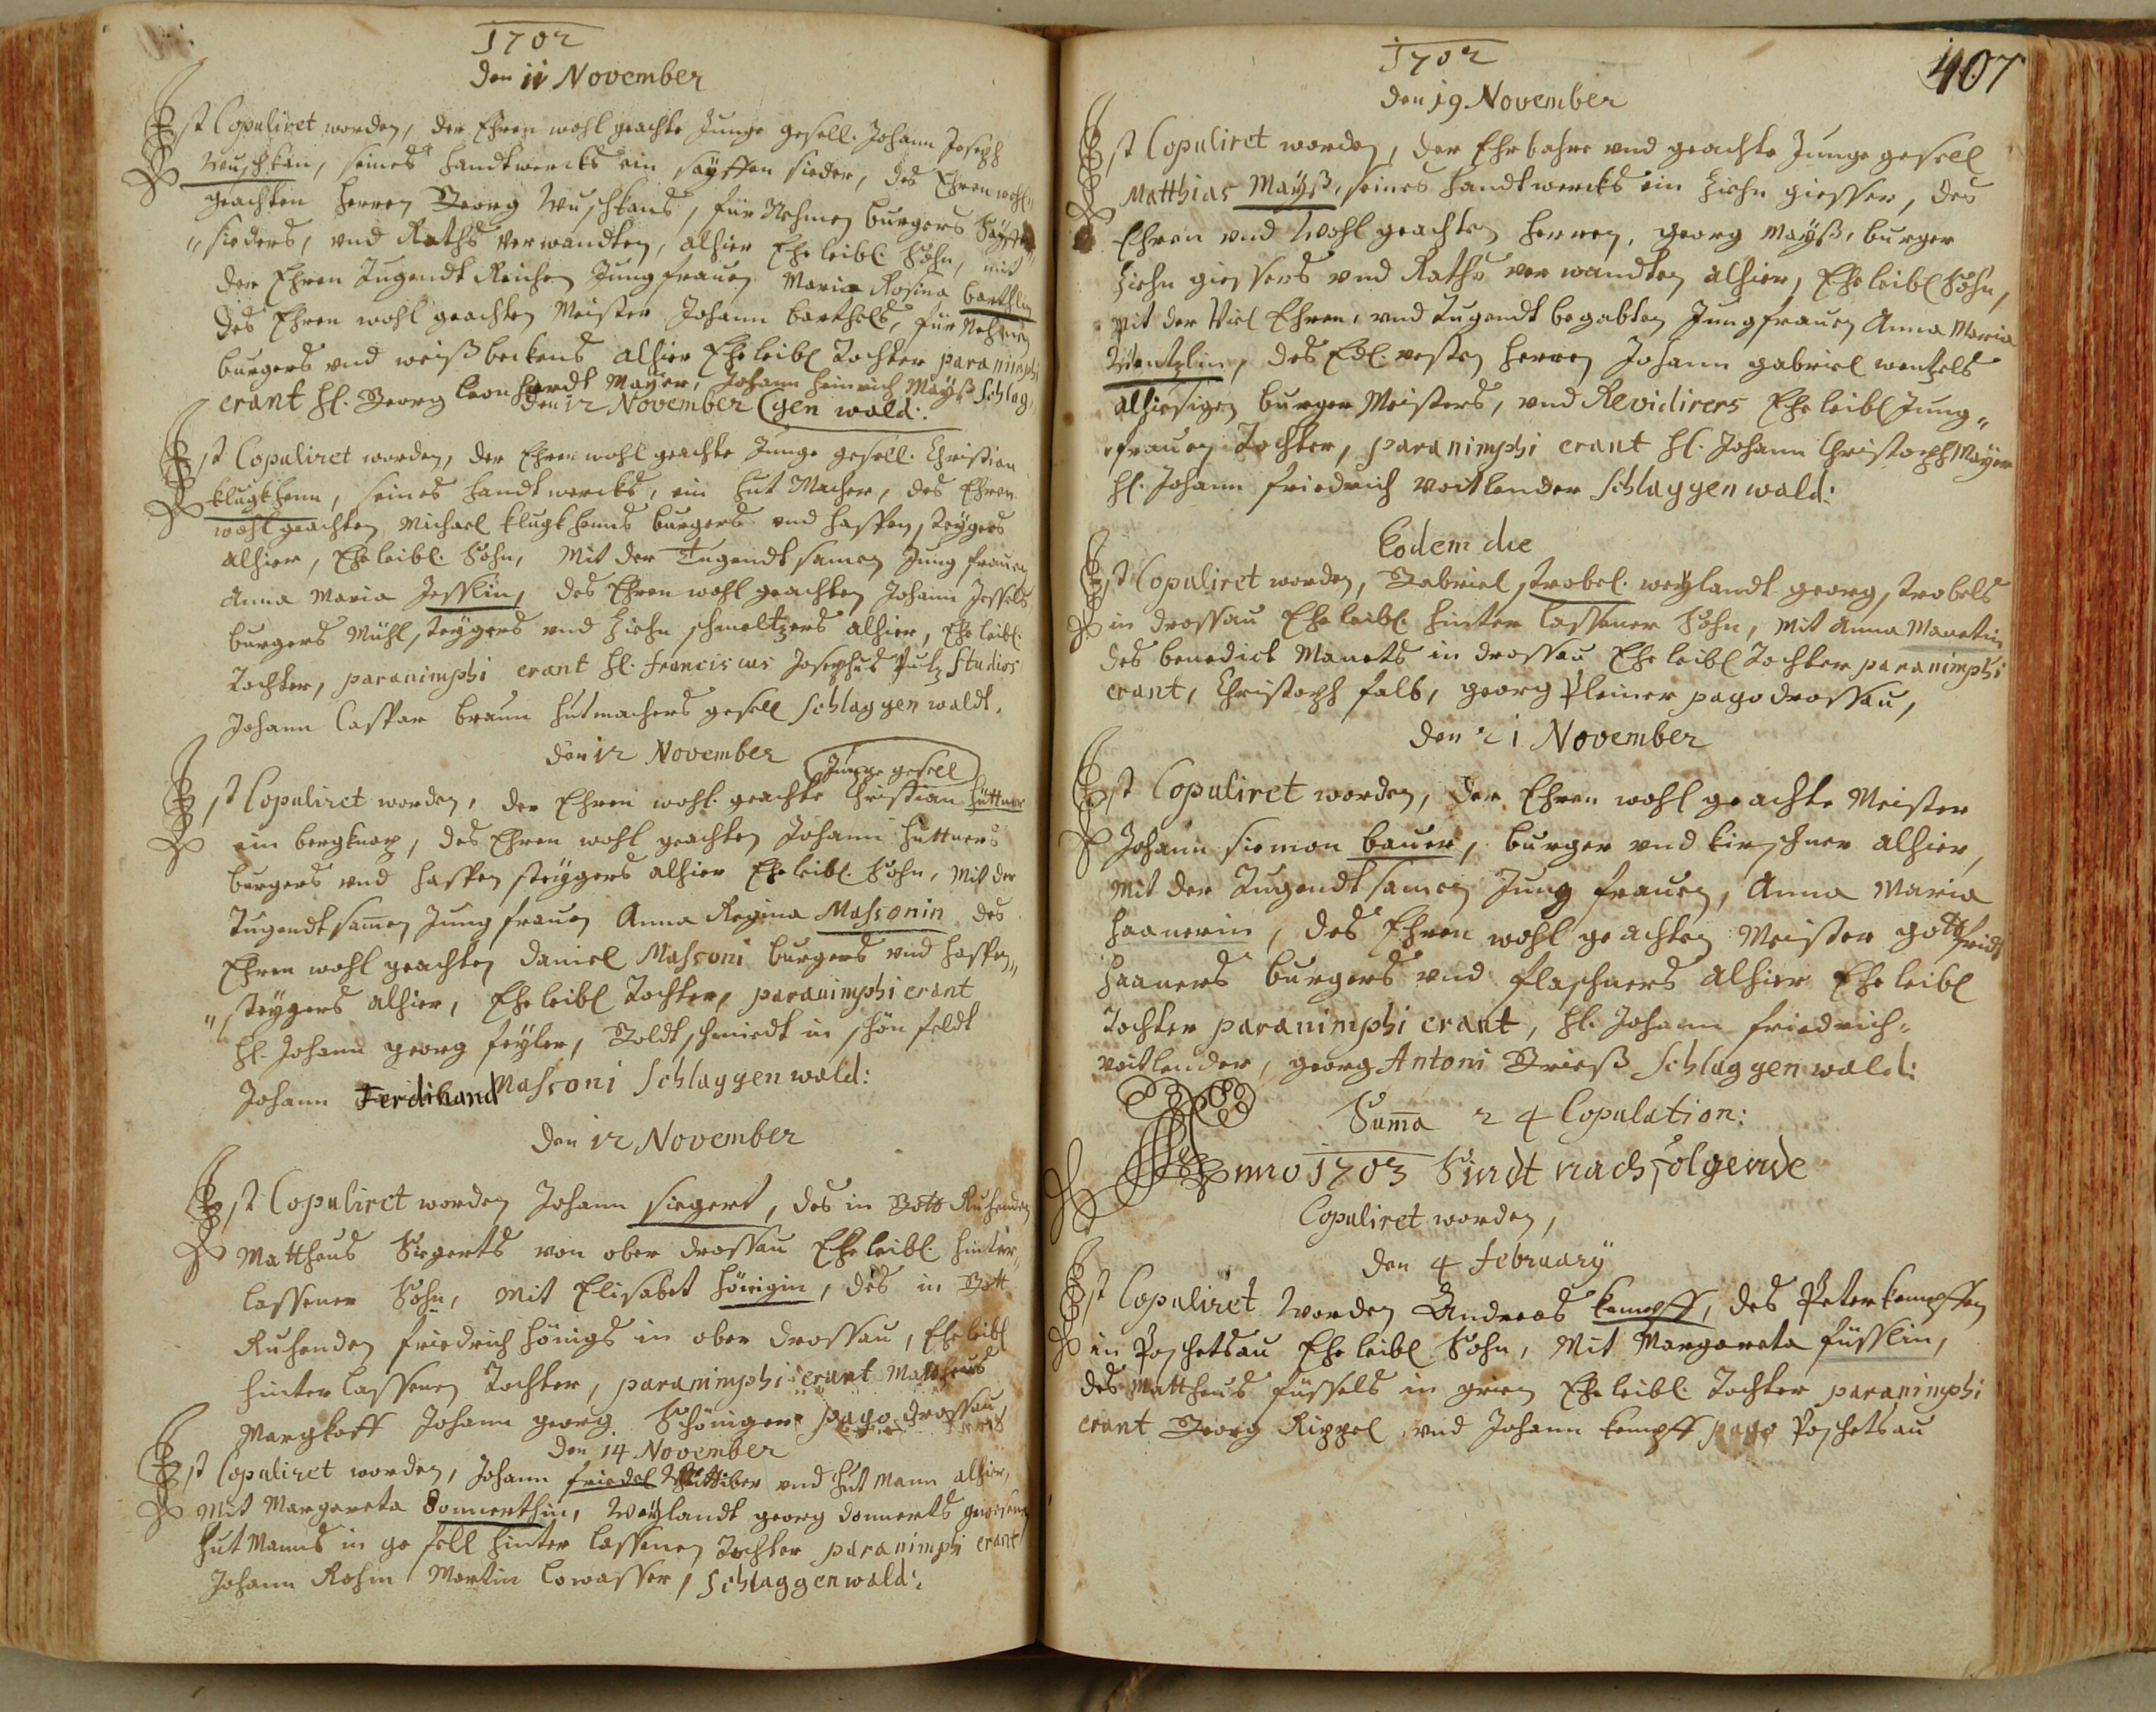 1702
den 11 November
Ist Copuliret worden, der Ehren wohl geachte Junge gesell. Johann Joseph
Wuschkan, seines handtwercks ein sayffen sieder, des Ehren wohl„
geachten Herren Georg Wuschkans, für Nehmen burgers Sayffen
„sieders, und Raths verwandten, alhier Eheleibl. Sohn, mit
der Ehren Tugendt Reichen Jungfrauen Maria Rosina barthlin
des Ehren wohl geachten Meister Johann barthels, für Nehmen
burgers und weißbeckens alhier Eheleibl Tochter paranimphi
erant hl. Georg Leonhardt Mayer, Johann Heinrich Mayß Schlag„
den 12 November (gen wald:
Ist Copuliret worden, der Ehren wohl geachte Junge gesell. Christian
klugkhenn, seines handtwercks, ein hut Macher, des Ehren
wohl geachten Michael klugkhenns burgers und haspen steygers
alhier, Eheleibl. Sohn, Mit der Tugendtsamen Jungfrauen
Anna Maria Jesslin, des Ehren wohl geachten Johann Jessels
burgers Mühl steygers und Ziehn schmeltzers alhier, Eheleibl.
Tochter, paranimphi erant hl. Franciscus Josephus Putz Studios
Johann Caspar braun hutmachers gesell Schlaggenwaldt.
den 12 November
Junge gesell
Ist Copuliret worden, der Ehren wohl. geachte Christian hüttner
ein bergknap, des Ehren wohl geachten Johann huttners
burgers und haspen steygers alhier Eheleibl. Sohn, Mit der
Tugendtsamen Jungfrauen Anna Regina Massonin des
Ehren wohl geachten Daniel Massoni burgers und haspen„
„steygers alhier, Eheleibl Tochter, paranimphi erant
hl. Johann georg feyler, Goldtschmiedt in schön feldt
Johann Ferdinand Massoni Schlaggenwald:
den 12 November
Ist Copuliret worden Johann siegert, des in Gott Ruhenden
Mattheus Siegerts von ober drossau Eheleibl. hinter„
lassener Sohn, Mit Elisabet hönigin, des in Gott
Ruhenden friedrich hönigs in ober drossau, Eheleibl
hinterlassenen Tochter, paranimphi erant Mattheus
Margkoff Johann georg Schöniger pago drossau
den 14 November
Ist Copuliret worden, Johann friedel Wittiber und hut Mann alhier,
Mit Margareta Donnerthin, Weylandt georg donnerts gewesenen
hut Manns in ge fell hinter lassenen Tochter paranimphi erant
Johann Rohm Martin Lowasser, Schlaggenwald:
1702
407
den 19 November
Ist Copuliret worden, der Ehrbahre und geachte Junge gesell
Matthias Mayß, seines handtwercks ein Ziehn giesser, des
Ehren und Wohl geachten herren, georg Mayß, burger
Ziehn giessers und Raths verwandten alhier, Eheleibl Sohn,
Mit der Viel Ehren, und Tugendt begabten Jungfrauen Anna Maria
Wentzlin, des Edl. vesten herren Johann gabriel wentzels
alhiesigen burger Meisters, und Revidirers Eheleibl Jung„
„frauen Tochter, paranimphi erant hl. Johann Christoph Mayer
hl. Johann friedrich Voitlender Schlaggenwald:
Eodem die
Ist Copuliret worden, Gabriel strobel. weylandt georg strobels
in drossau Eheleibl. hinter lassener Sohn, Mit Anna Manetin
des benedict Manets in drossau Eheleibl Tochter paranimphi
erant, Christoph falb, georg Pleiner pago drossau,
den 21 November
Ist Copuliret worden, der Ehren wohl geachte Meister
Johann siemon bauer, burger und kirschner alhier,
Mit der Tugendtsamen Jungfrauen, Anna Maria
haanerin, des Ehren wohl geachten Meister gottfridt
haaners burgers und flaschners alhier Eheleibl
Tochter paranimphi erant, hl. Johann friedrich„
Voitlender, georg Antoni Grieß Schlaggenwald:
Suma 24 Copulation:
Anno 1703 Sindt nachfolgende
Copuliret worden,
den 4 february
Ist Copuliret worden Andreas kempff, des Peter kempffen
in Poschetsau Eheleibl Sohn, Mit Margareta füsslin,
des Mattheus füssels in grien Eheleibl. Tochter paranimphi
erant Georg Rippel und Johann kempff pago Poschetsau